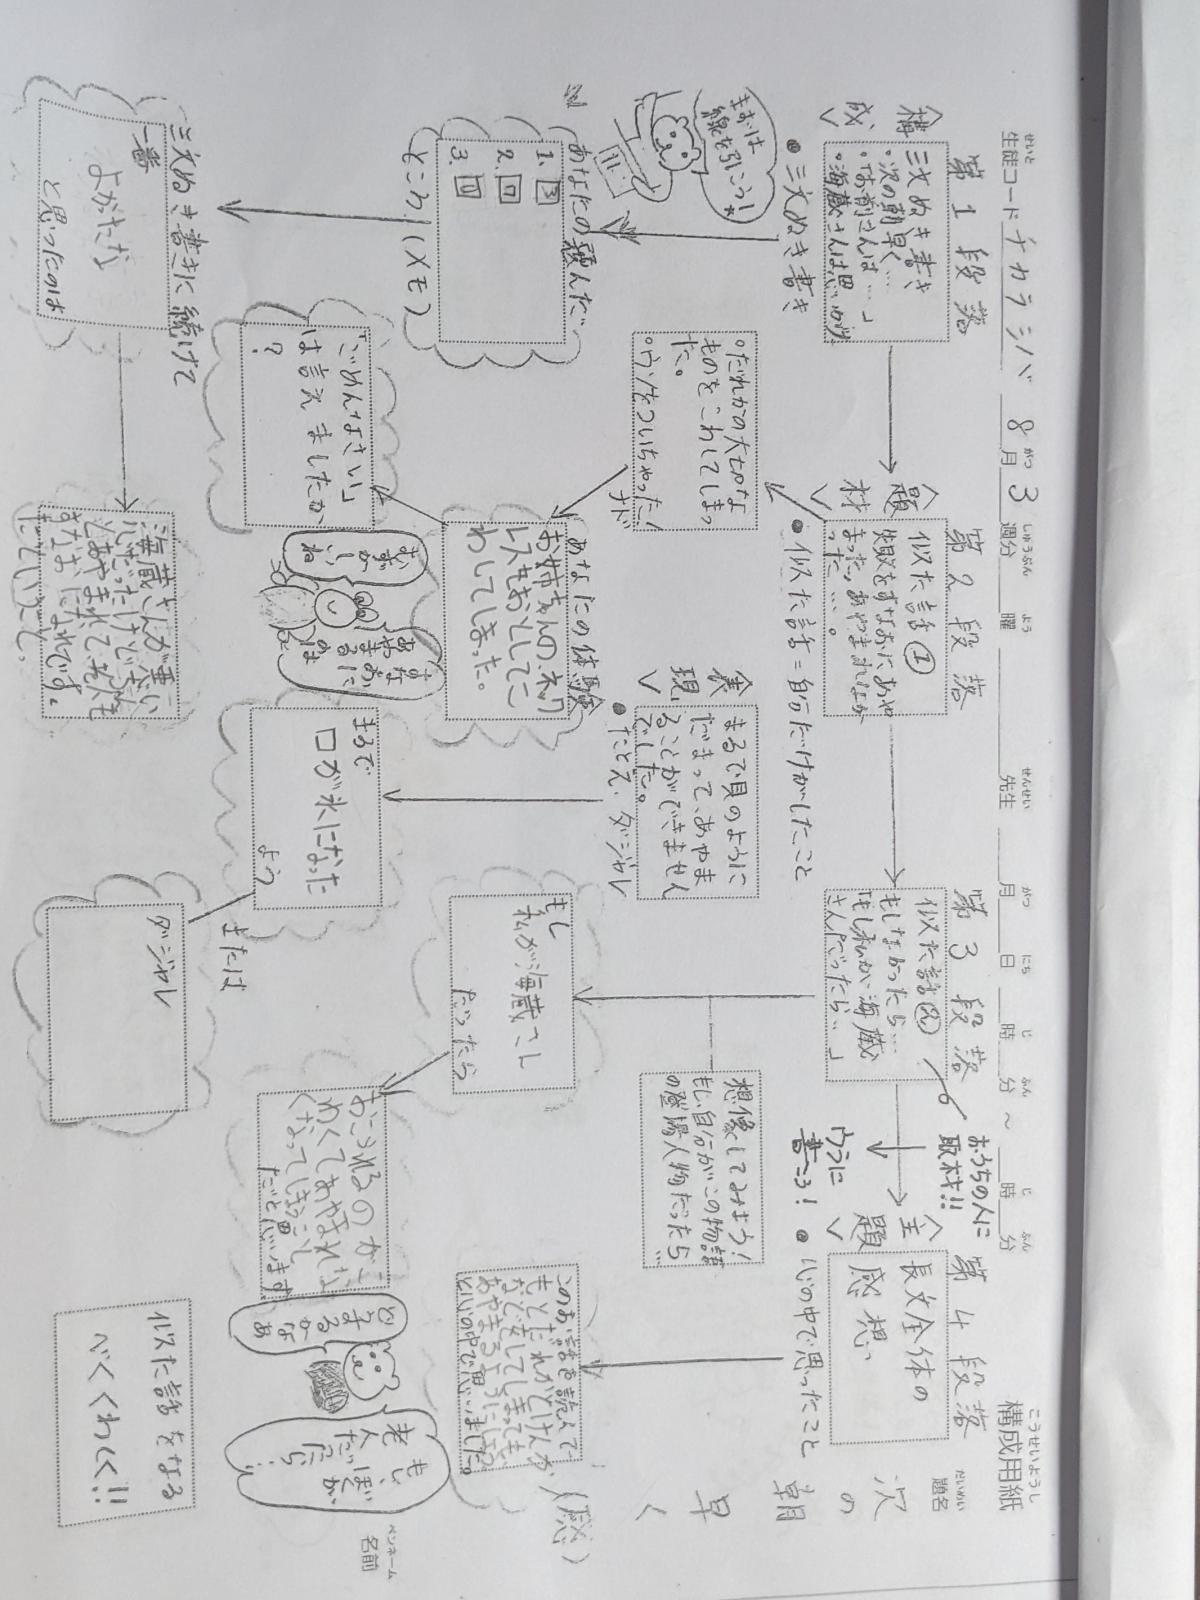 構成用紙
こうせいようし
題名
だいめい
次の朝早く(感)
ペンネーム
名前
せいと
生徒コード チカラシバ 8月3週分 曜 先生 月 日 時 分 ~ 時 分
がつ しゅうぶん よう せんせい がつ にち じ ふん じ ふん
第1段落
<構成>
三文ぬき書き
・次の朝早く…
・海蔵さんは思いがけ
●三文ぬき書き
まずは
線を引こう!*
あなたの選んだ
1.
2.
3.
ところ!(メモ)
三文ぬき書きに続けて
一番
よかたな
と思ったのは
海蔵さんが悪い
たということ。
第2段落
<題材>
似た話①
失敗をすなおにあや
まったリあやまれなか
った…。
●似た話=自分だけがしたこと
・だれかの大切な
ものをこわしてしまっ
た。
・ウソをついちゃった!
ナド
あなたの体験
お姉ちゃんのネック
レスをおとしてこ
わしてしまった。
「ごめんなさい」
は言えましたか
?
すなおに
あやまる
のは
むずかしい
ね
<表現>
まるで貝のように
だまって、あやま
ることができません
でした。
●たとえ・ダジャレ
まるで
口が氷になった
よう
または
ダジャレ
第3段落
似た話②
もしなかったら…
「もし私が海蔵
さんだったら…」
おうちの人に
取材!!
ウラに
書こう!
想像してみよう!
もし自分がこの物語
の登場人物だったら…
もし
私が海蔵さん
だったら
おこられるのがこ
わくてあやまれな
くなってしまう
だと思います
第4段落
<主題>
長文全体の
感想
●心の中で思ったこと
このお話を読んで
もしだれかとけんか
などをしてしまっても、
あやまるようにしよう
と心の中で思いました。
どう
するか
なあ
もし
ぼくが
老人
だったら…
似た話をなる
べくくわしく!!